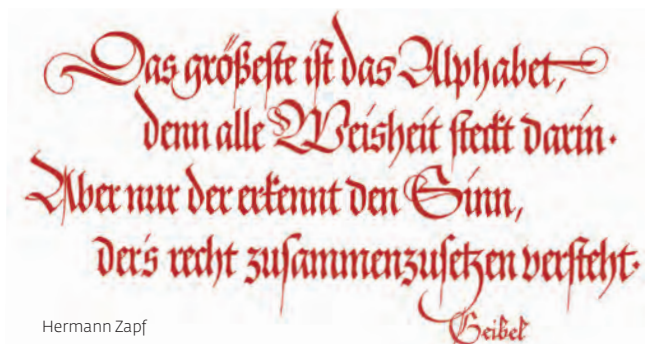 Das größeste ist das Alphabet,
denn alle Weisheit steckt darin.
Aber nur der erkennt den Sinn,
der's recht zusammenzusetzen versteht.
Geibel
Hermann Zapf